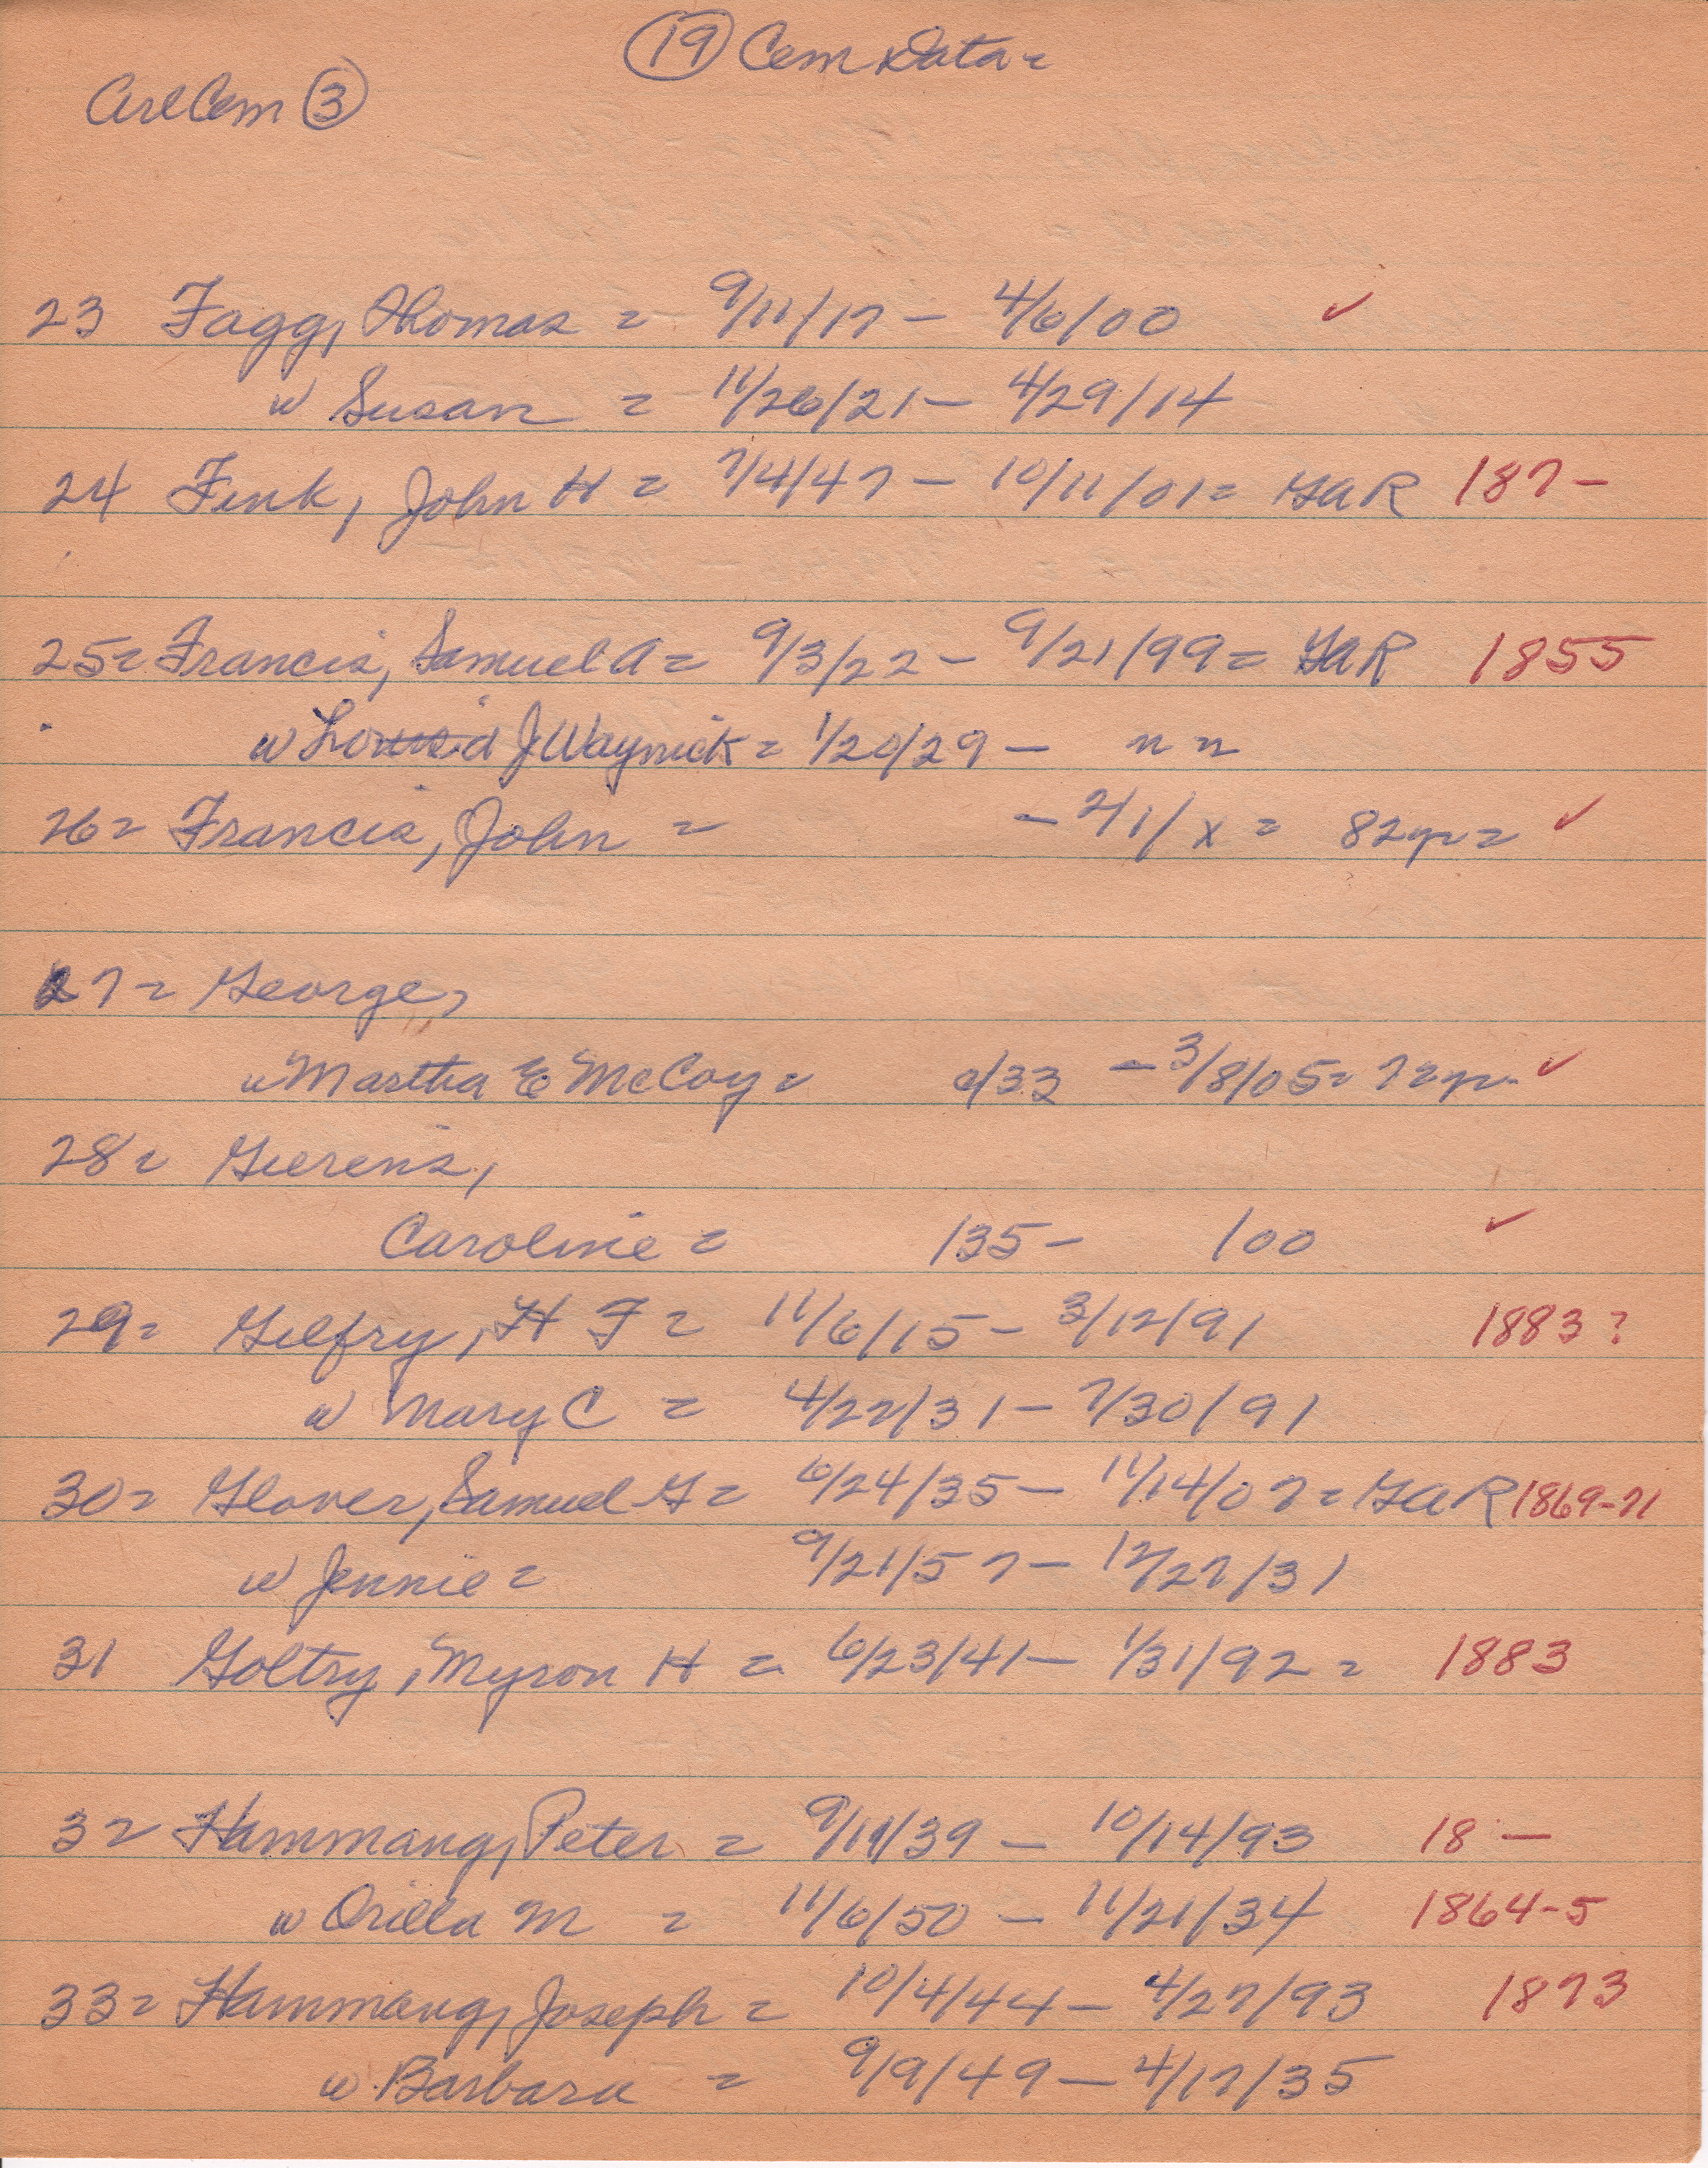 (19) Cem Data =
ArlCem (3)
23 Fagg, Thomas = 9/11/17 - 4/6/00 ✓
w Susan = 11/26/21 - 4/29/14
24 Fink, John H = 7/4/47 - 10/11/01 = GAR 187-
25 = Francis, Samuel A = 9/3/22 - 9/21/99 = GAR 1855
w J Waynick = 1/20/29 - n n
26 = Francis, John = - 2/1/x = 82yr = ✓
27 = George,
w Martha E McCoy = c/33 - 3/8/05 = 72yr - ✓
28 = Gierens,
Caroline = /35 - /00 ✓
29 = Gilfry, H F = 11/6/15 - 3/12/91 1883?
w Mary C = 4/22/31 - 7/30/91
30 = Glover, Samuel G = 6/24/35 - 11/14/07 = GAR 1869-71
w Jennie = 9/21/57 - 12/27/31
31 Goltry, Myron H = 6/23/41 - 1/31/92 = 1883
32 Hammang, Peter = 9/11/39 - 10/14/93 18 -
w Orilla M = 11/6/50 - 11/21/34 1864-5
33 = Hammang, Joseph = 10/4/44 - 4/27/93 1873
w Barbara = 9/9/49 - 4/17/35